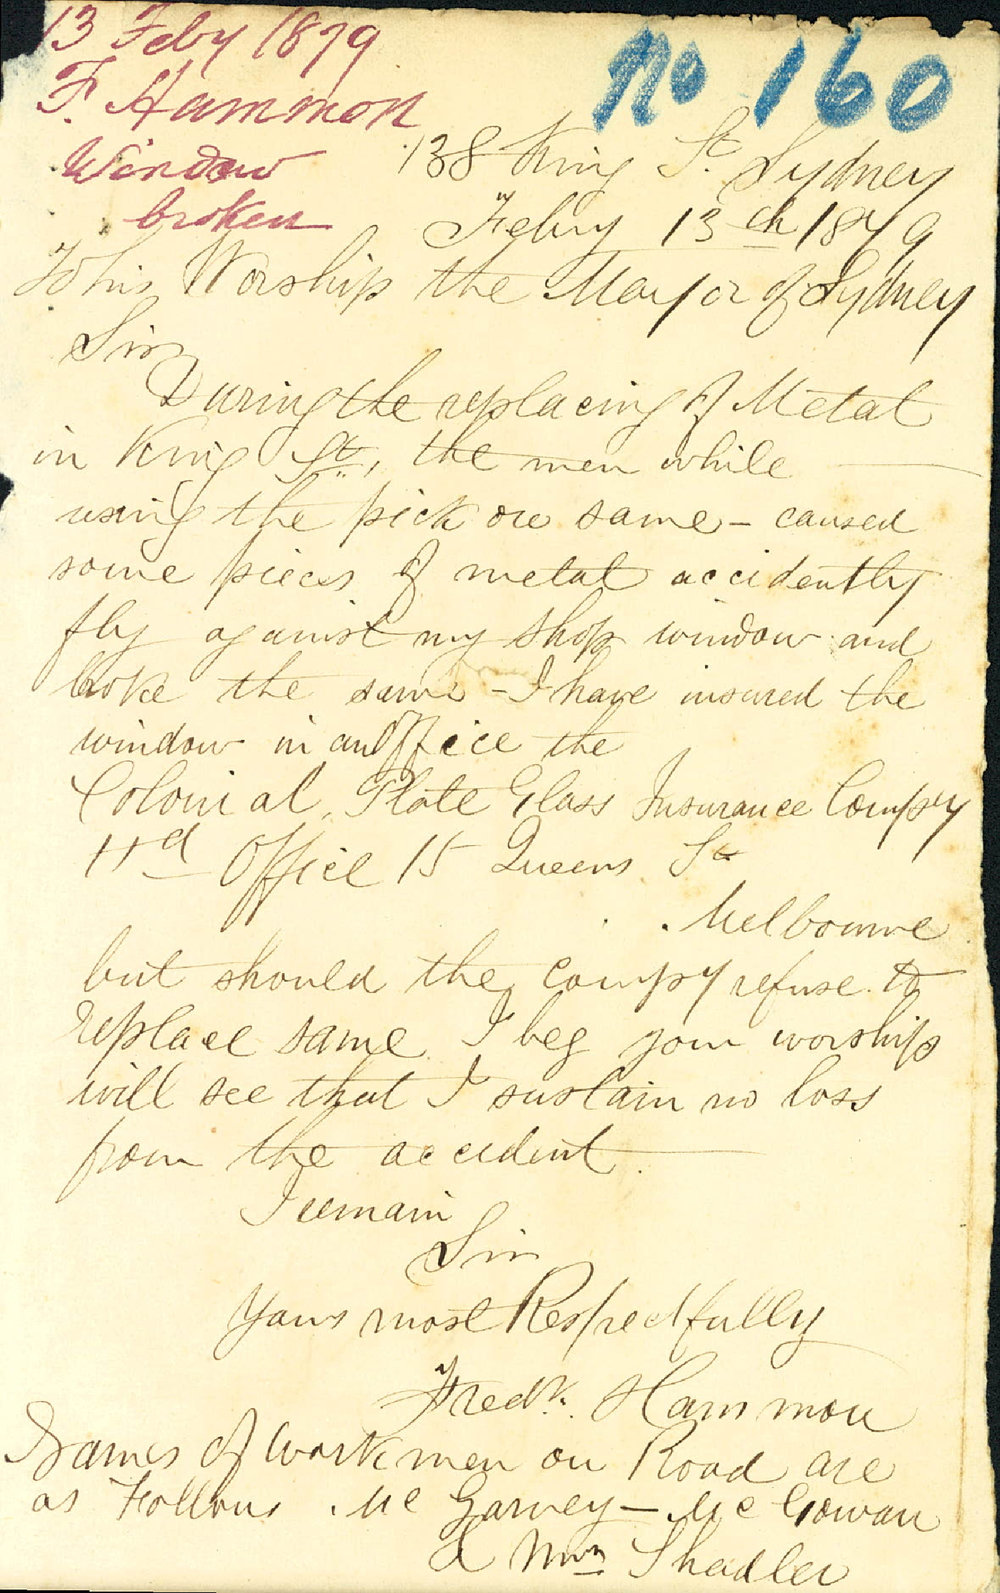 13 Feby 1879
F. Hammon
Window
broken
No 160
138 King St. Sydney
Feby 13th 1879
To his Worship the Mayor of Sydney
Sir
During the replacing of Metal
in King St., the men while
using the pick on same - caused
some pieces of metal accidently
fly against my shop window and
broke the same - I have insured the
window in an Office the
Colonial Plate Glass Insurance Compy
Hd Office 15 Queens St
Melbourne
but should the compy refuse to
replace same I beg your worship
will see that I sustain no loss
from the accident.
I remain
Sir
Yours most Respectfully
Fredk. Hammon
Names of Workmen on Road are
as Follows Mc Garvey - Mc Gowan
& Wm Shadler